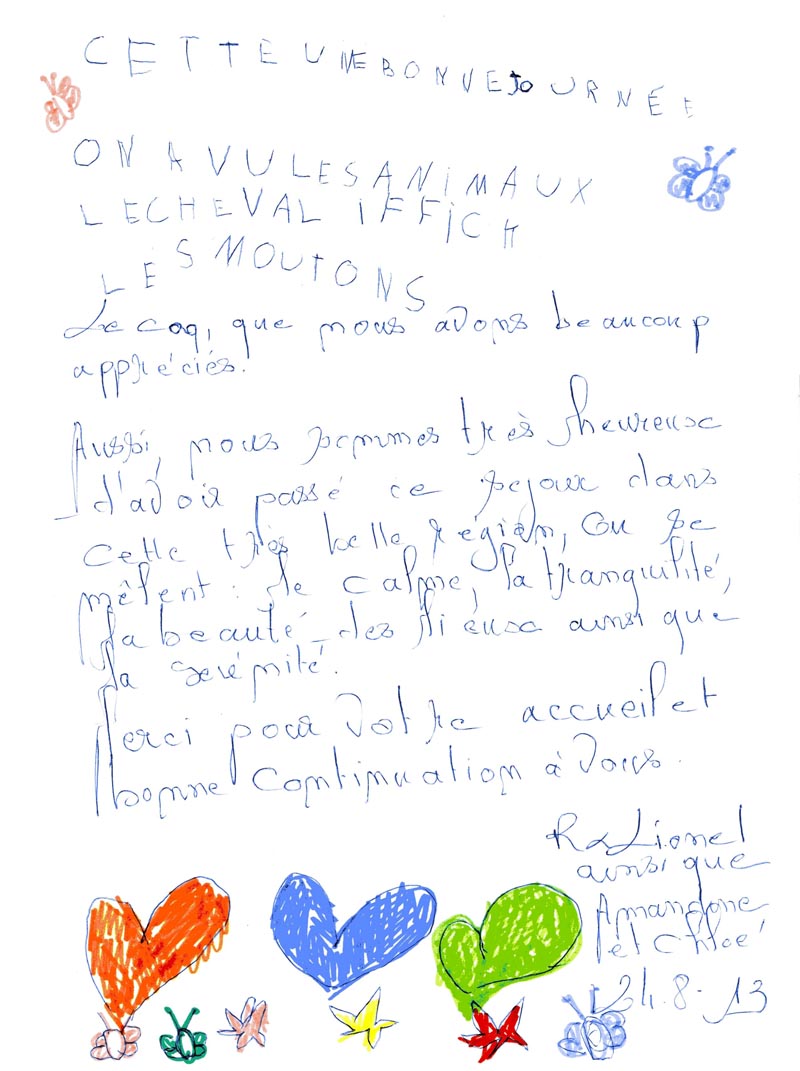 CETTE UNE BONVE JOURNÉE
ON A VU LES ANIMAUX
LE CHEVAL IFFICH
LES MOUTONS
Le coq, que nous avons beaucoup
appréciés.
Aussi, nous sommes très heureuse
d'avoir passé ce sejour dans
cette très belle région, Ou se
mêlent : le calme, la tranquilité,
la beauté des lieux ainsi que
la serénité.
Merci pour votre accueil et
bonne continuation à vous.
Lionel
ainsi que
Amandone
et Chloé
24.8-13